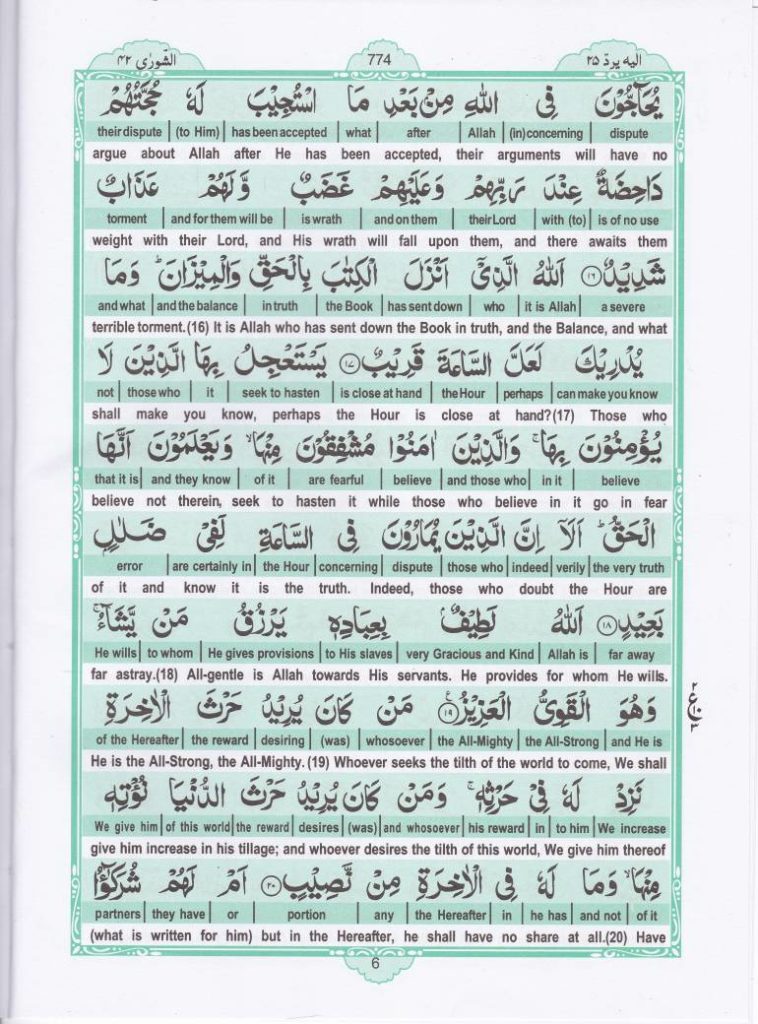 الیه یردّ ۲۵ 774 الشّورٰی ۴۲
يُحَآجُّوْنَ فِى اللهِ مِنْۢ بَعْدِ مَا اسْتُجِيْبَ لَهٗ حُجَّتُهُمْ
their dispute | (to Him) | has been accepted | what | after | Allah | (in)concerning | dispute
argue about Allah after He has been accepted, their arguments will have no
دَاحِضَةٌ عِنْدَ رَبِّهِمْ وَعَلَيْهِمْ غَضَبٌ وَّلَهُمْ عَذَابٌ
torment | and for them will be | is wrath | and on them | their Lord | with (to) | is of no use
weight with their Lord, and His wrath will fall upon them, and there awaits them
شَدِيْدٌ ۝۱۶ اَللهُ الَّذِىْٓ اَنْزَلَ الْكِتٰبَ بِالْحَقِّ وَالْمِيْزَانَ ؕ وَمَا
and what | and the balance | in truth | the Book | has sent down | who | it is Allah | a severe
terrible torment.(16) It is Allah who has sent down the Book in truth, and the Balance, and what
يُدْرِيْكَ لَعَلَّ السَّاعَةَ قَرِيْبٌ ۝۱۷ يَسْتَعْجِلُ بِهَا الَّذِيْنَ لَا
not | those who | it | seek to hasten | is close at hand | the Hour | perhaps | can make you know
shall make you know, perhaps the Hour is close at hand?(17) Those who
يُؤْمِنُوْنَ بِهَا ۚ وَالَّذِيْنَ اٰمَنُوْا مُشْفِقُوْنَ مِنْهَا ۙ وَيَعْلَمُوْنَ اَنَّهَا
that it is | and they know | of it | are fearful | believe | and those who | in it | believe
believe not therein, seek to hasten it while those who believe in it go in fear
الْحَقُّ ؕ اَلَآ اِنَّ الَّذِيْنَ يُمَارُوْنَ فِى السَّاعَةِ لَفِىْ ضَلٰلٍۢ
error | are certainly in | the Hour | concerning | dispute | those who | indeed | verily | the very truth
of it and know it is the truth. Indeed, those who doubt the Hour are
بَعِيْدٍ ۝۱۸ اَللهُ لَطِيْفٌۢ بِعِبَادِهٖ يَرْزُقُ مَنْ يَّشَآءُ ۚ
He wills | to whom | He gives provisions | to His slaves | very Gracious and Kind | Allah is | far away
far astray.(18) All-gentle is Allah towards His servants. He provides for whom He wills.
وَهُوَ الْقَوِىُّ الْعَزِيْزُ ۝۱۹ مَنْ كَانَ يُرِيْدُ حَرْثَ الْاٰخِرَةِ
of the Hereafter | the reward | desiring | (was) | whosoever | the All-Mighty | the All-Strong | and He is
He is the All-Strong, the All-Mighty. (19) Whoever seeks the tilth of the world to come, We shall
نَزِدْ لَهٗ فِىْ حَرْثِهٖ ۚ وَمَنْ كَانَ يُرِيْدُ حَرْثَ الدُّنْيَا نُؤْتِهٖ
We give him | of this world | the reward | desires | (was) | and whosoever | his reward | in | to him | We increase
give him increase in his tillage; and whoever desires the tilth of this world, We give him thereof
مِنْهَا ۙ وَمَا لَهٗ فِى الْاٰخِرَةِ مِنْ نَّصِيْبٍ ۝۲۰ اَمْ لَهُمْ شُرَكٰٓؤُا
partners | they have | or | portion | any | the Hereafter | in | he has | and not | of it
(what is written for him) but in the Hereafter, he shall have no share at all.(20) Have
6